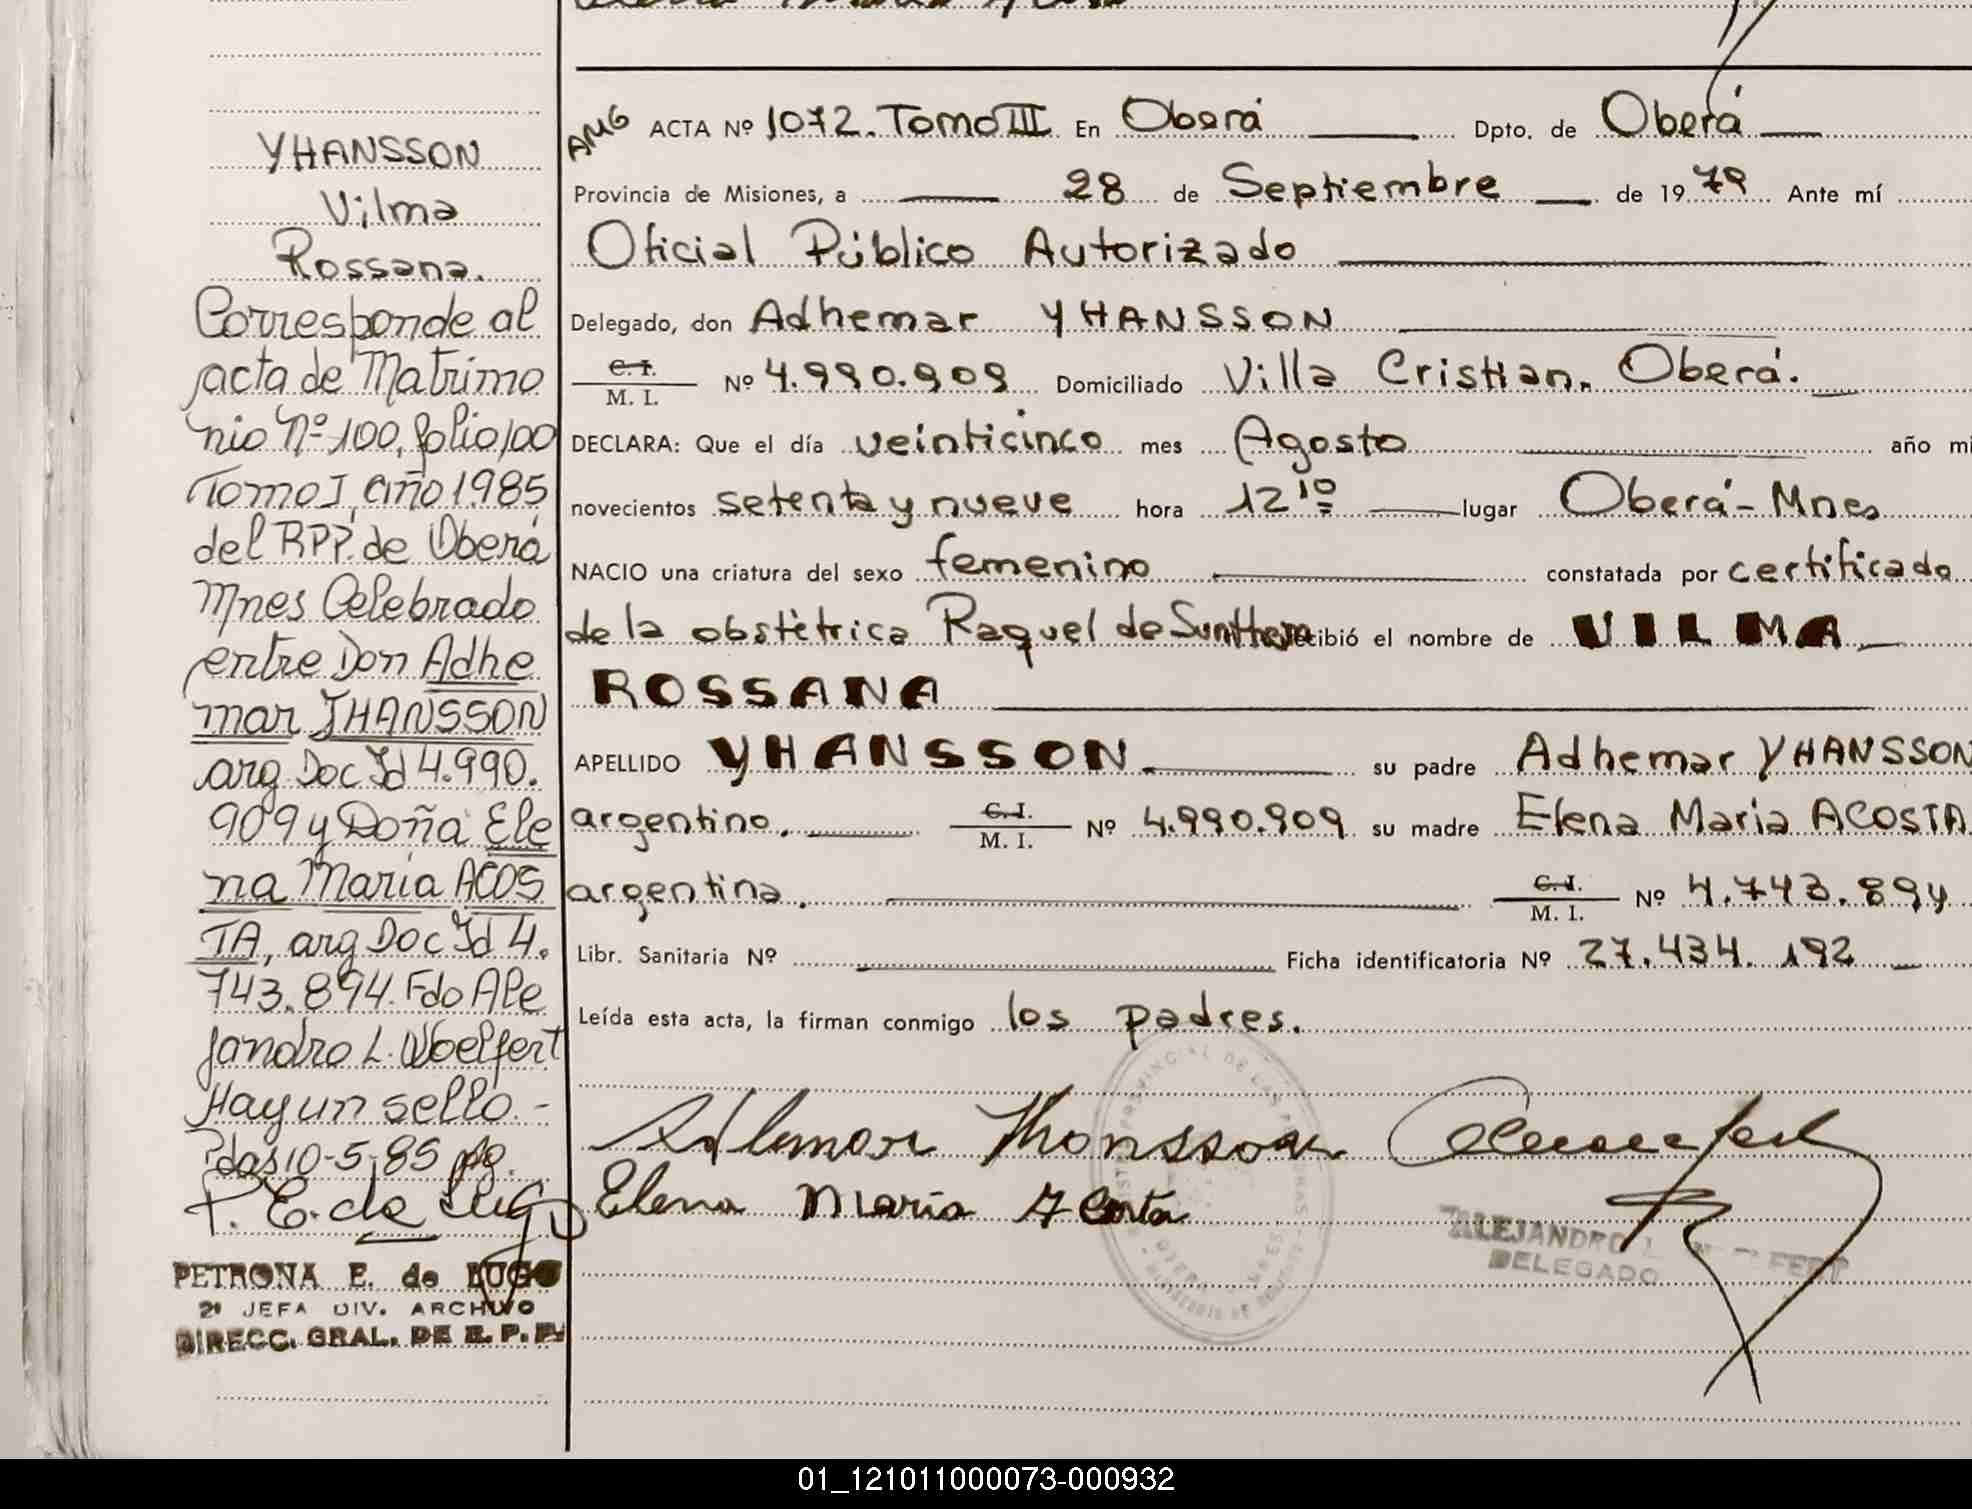 YHANSSON
Vilma
Rossana.
Corresponde al
acta de Matrimo
nio Nº 100, folio 100
Tomo I, año 1985
del RPP. de Oberá
Mnes Celebrado
entre Don Adhe
mar JHANSSON
arg Doc Id 4.990.
909 y Doña Ele
na María ACOS
TA, arg Doc Id 4.
743.894. Fdo Ale
jandro L. Woelfert
Hay un sello.-
Pdas 10-5-85
P. E. de Lugo
PETRONA E. de LUGO
2ª JEFA DIV. ARCHIVO
DIRECC. GRAL. DE E. P. P.
AMG ACTA Nº 1072. Tomo III En Oberá Dpto. de Oberá
Provincia de Misiones, a 28 de Septiembre de 19 79 Ante mí
Oficial Público Autorizado
Delegado, don Adhemar YHANSSON
C.I.
M. I. Nº 4.990.909 Domiciliado Villa Cristian. Oberá.
DECLARA: Que el día veinticinco mes Agosto año mi
novecientos setenta y nueve hora 12 10 lugar Oberá - Mnes
NACIO una criatura del sexo femenino constatada por certificado
de la obstétrica Raquel de recibió el nombre de VILMA
ROSSANA
APELLIDO YHANSSON su padre Adhemar YHANSSON
argentino. C.I. M. I. Nº 4.990.909 su madre Elena Maria ACOSTA
argentina. C.I. M. I. Nº 4.743.894
Libr. Sanitaria Nº Ficha identificatoria Nº 27.434.192
Leída esta acta, la firman conmigo los padres.
Adhemar Yhansson
Elena María Acosta
ALEJANDRO L. FERT
DELEGADO
01_121011000073-000932